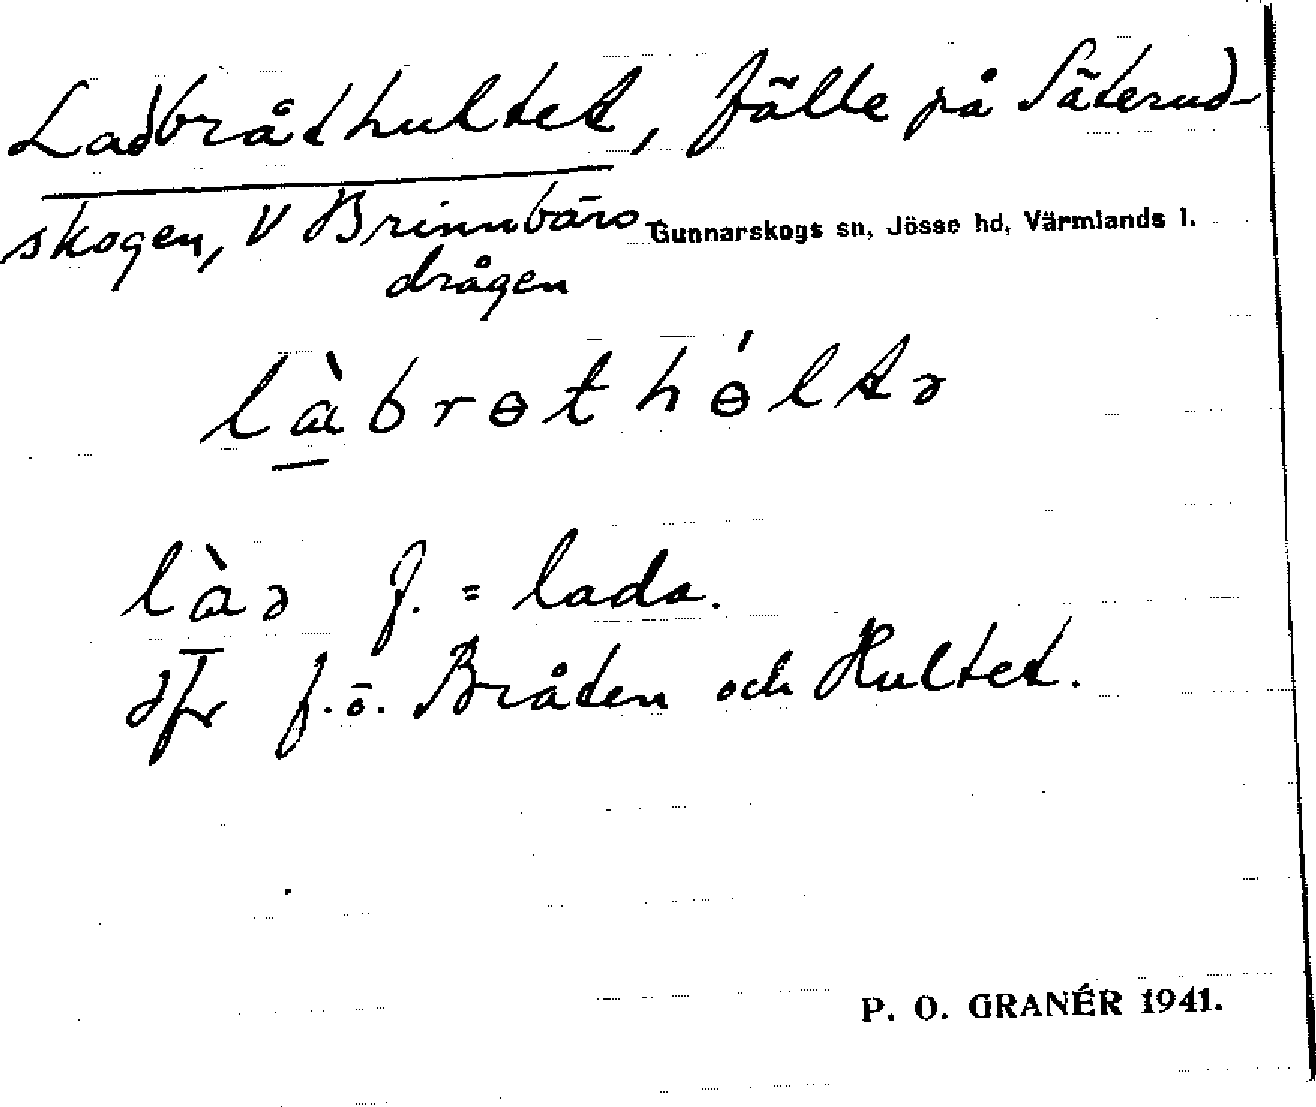 Ladbråthultet, fälle på Säterud-
skogen, V Brinnbärs-
Gunnarskogs sn, Jösse hd, Värmlands l.
drågen
làbrɵthɵ́ltə
làə f. = lada.
Jfr f.ö. Bråten och Hultet.
P. O. GRANÉR 1941.